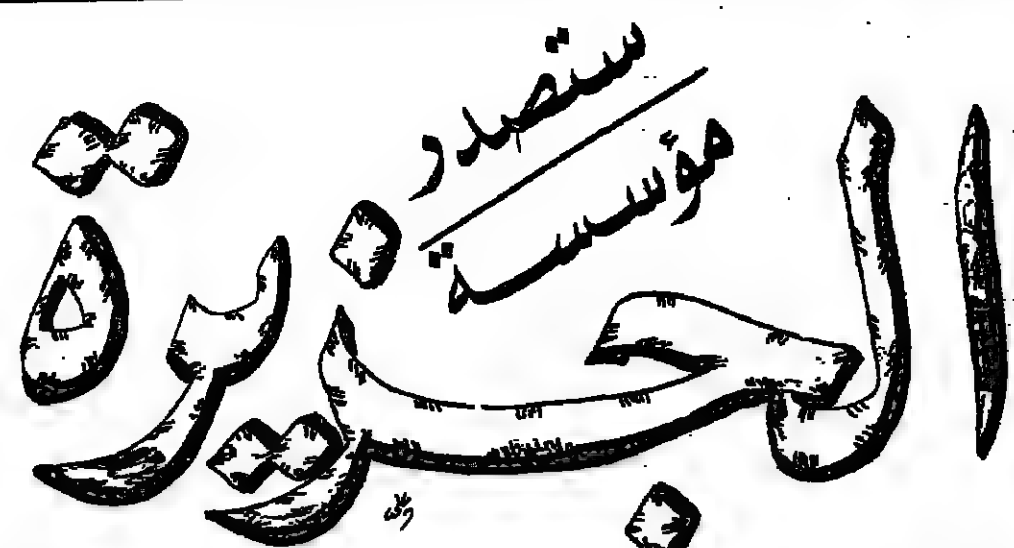 ستصدر
مؤسسة
الجزيرة